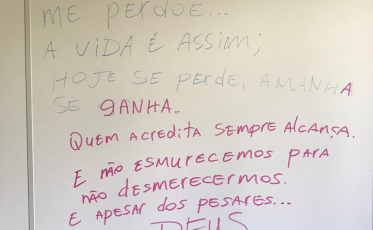 ME PERDOE...
A VIDA É ASSIM;
HOJE SE PERDE, AMANHÃ
SE GANHA..
QUEM ACREDITA SEMPRE ALCANÇA.
E NÃO ESMURECEMOS PARA
NÃO DESMERECERMOS.
E APESAR DOS PESARES...
DEUS